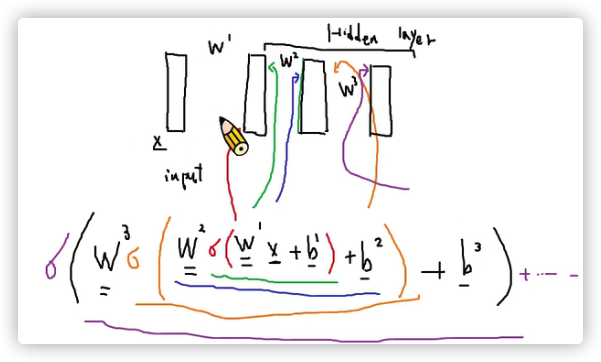 Hidden layer
W¹ W² W³
x
input
σ(W³ σ(W² σ(W¹ x + b¹) + b²) + b³) + ...